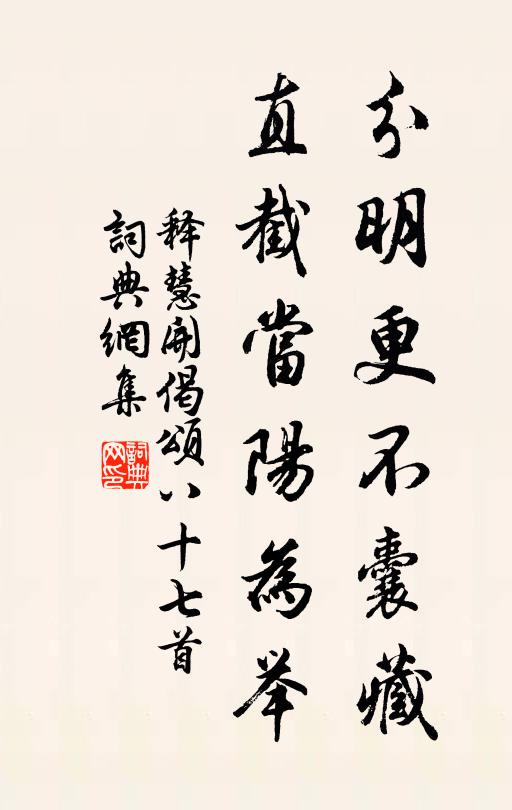 分明更不囊藏
直截當陽為举
释慧開偈頌八十七首
詞典網集
詞典網印